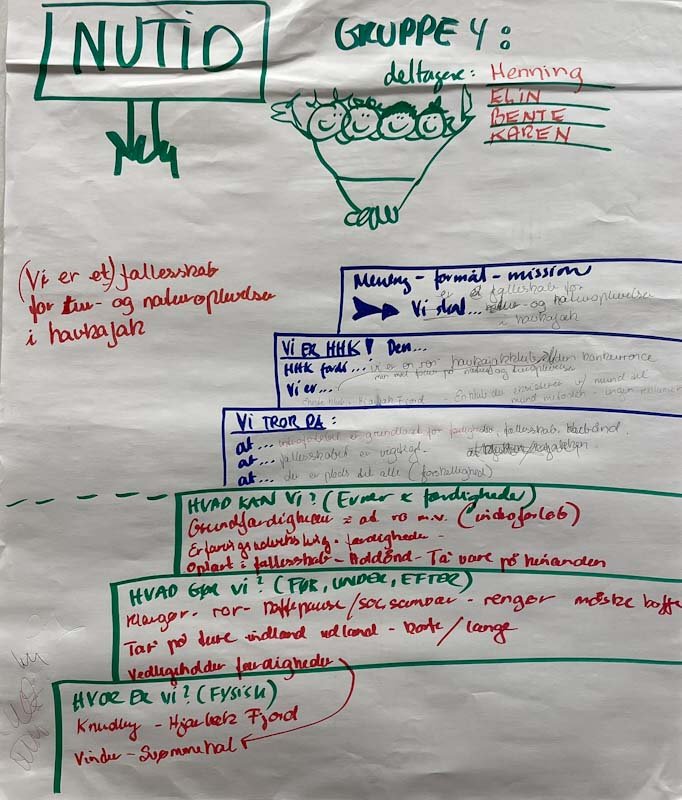 NUTID
GRUPPE 4:
deltagere: Henning
ELIN
BENTE
KAREN
(Vi er et) fællesskab
for tur- og naturoplevelser
i havkajak
Mening - formål - mission
Vi skal... er et fællesskab for
tur- og naturoplevelser
i havkajak
Vi ER HHK! Den...
HHK fordi... vi er en ro- havkajakklub uden konkurrence
men med fokus på
Vi er...
Vi TROR PÅ:
at... introforløbet er grundlaget for færdigheder, fællesskab,
at... fællesskabet er vigtigt.
at... der er plads til alle (forskellighed)
HVAD KAN VI? (Evner & færdigheder)
Grundfærdigheder = at ro m.v. (introforløb)
Erfaringsudveksling - færdigheder -
Oplært i fællesskab - Holdånd - Ta' vare på hinanden
HVAD GØR VI? (FØR, UNDER, EFTER)
Klargør - ror - kaffepause/soc. samvær - rengør måske kaffe
Tar' på ture indland udland - korte/lange
Vedligeholder færdigheder
HVOR ER VI? (FYSISK)
Knudby - Hjarbæk Fjord
Vinter - Svømmehal